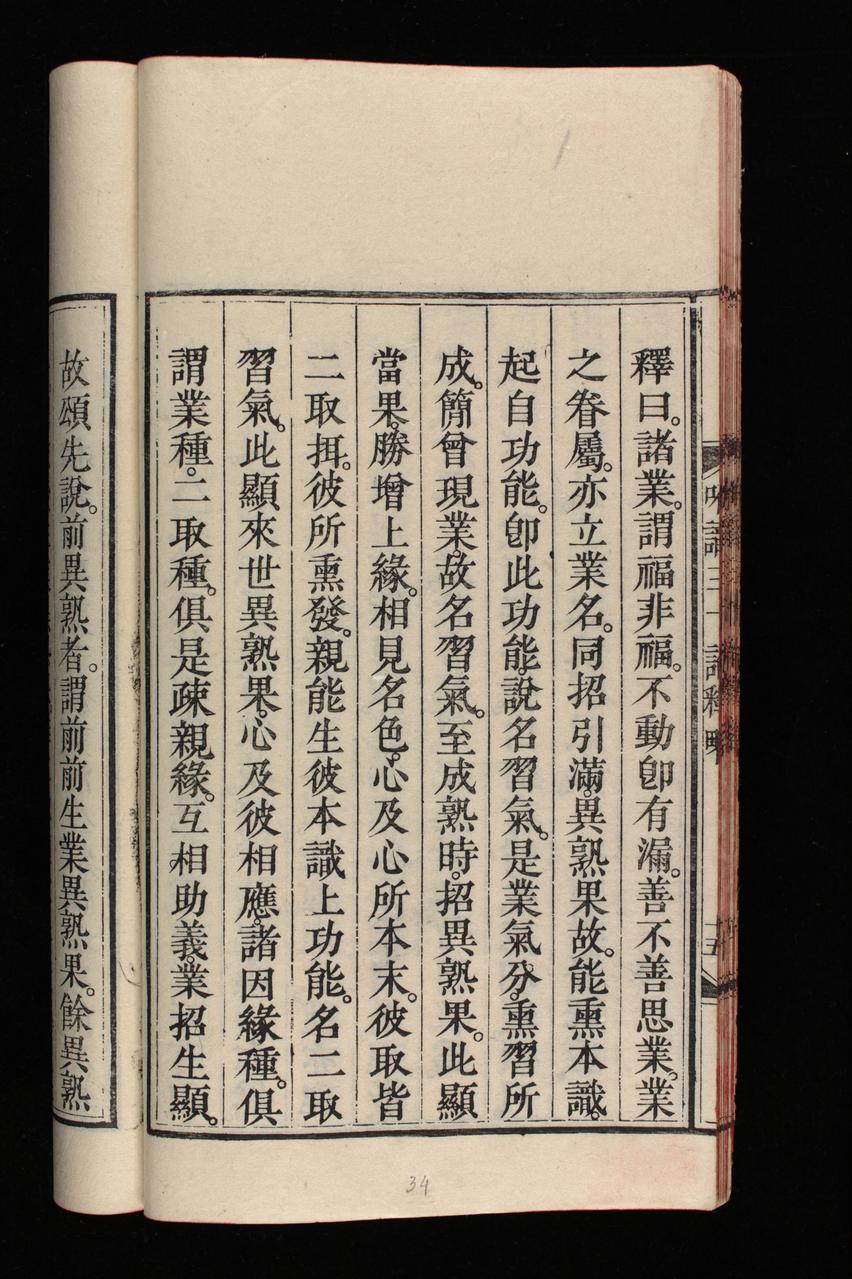 釋曰。諸業。謂福非福。不動卽有漏。善不善思業。業
之眷屬。亦立業名。同招引滿。異熟果故。能熏本識。
起自功能。卽此功能。說名習氣。是業氣分。熏習所
成。簡曾現業。故名習氣。至成熟時。招異熟果。此顯
當果。勝增上緣。相見名色。心及心所本末。彼取皆
二取揖。彼所熏發。親能生彼本識上功能。名二取
習氣。此顯來世異熟果。心及彼相應。諸因緣種。俱
謂業種。二取種。俱是疎親緣。互相助義。業招生顯。
故頌先說。前異熟者。謂前前生業異熟果。餘異熟
三十
釋略
十五
34